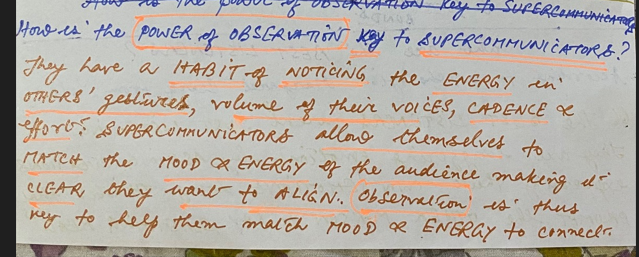 How is the power of OBSERVATION key to SUPERCOMMUNICATORS
How is the POWER of OBSERVATION key to SUPERCOMMUNICATORS?
They have a HABIT of NOTICING the ENERGY in
OTHERS' gestures, volume of their VOICES, CADENCE &
effort. SUPERCOMMUNICATORS allow themselves to
MATCH the MOOD & ENERGY of the audience making it
CLEAR, they want to ALIGN. Observation is thus
key to help them match MOOD & ENERGY to connect.